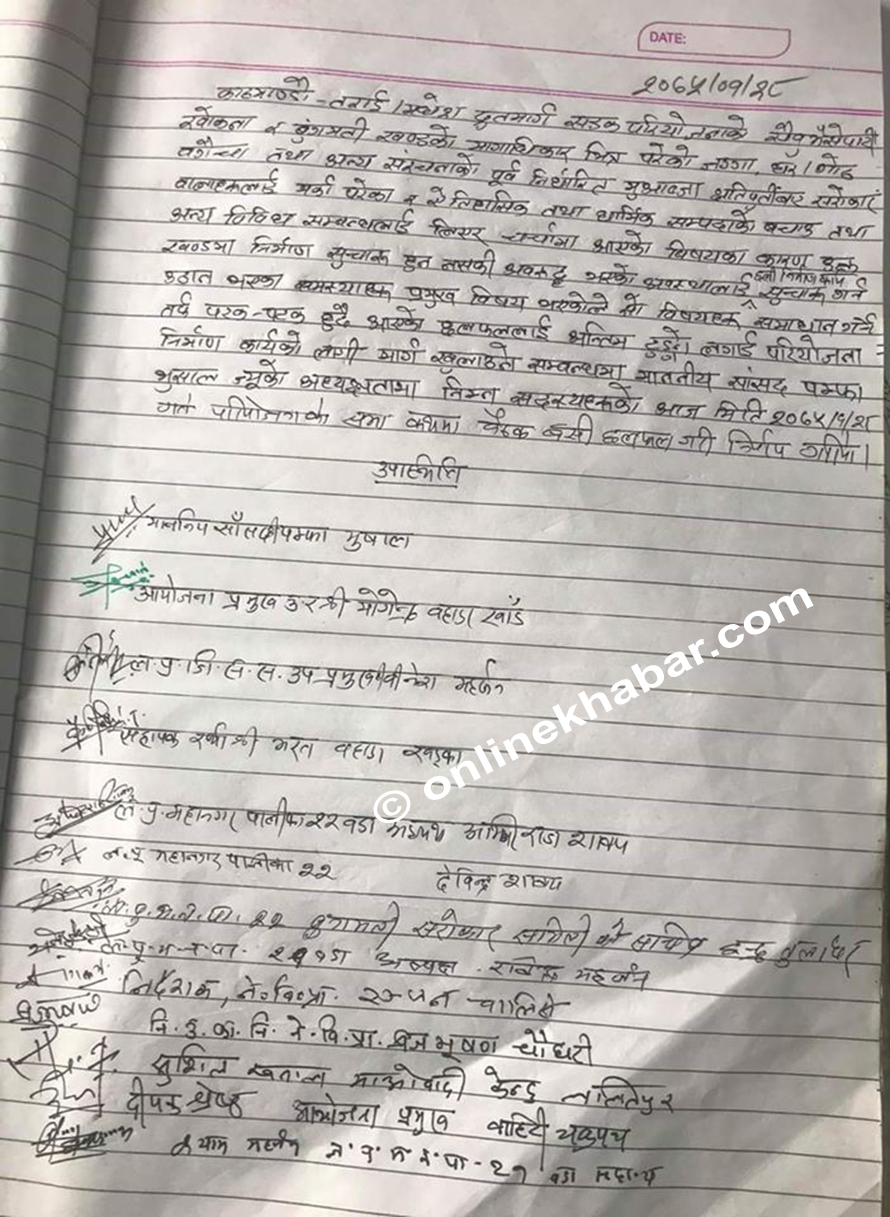 DATE:
२०७५/०१/२८
काठमाण्डौ-तराई/मधेश द्रुतमार्ग सडक परियोजनाको
खोकना र बुंगमती खण्डको मार्गाधिकार भित्र परेको जग्गा, घर/गोठ
बगैंचा तथा अन्य संरचनाको पूर्व निर्धारित मुआब्जा क्षतिपूर्तीबर सरोकार
वालाहरूलाई मर्का परेका र ऐतिहासिक तथा धार्मिक सम्पदाको बचाउ तथा
अन्य विविध सम्बन्धलाई लिएर चर्चामा आएको विषयका कारण
खण्डमा निर्माण सुचारू हुन नसकी अवरुद्ध भएको अवस्थालाई सुचारू गर्न
उठान भएका समस्याहरू प्रमुख विषय भएकोले सो विषयहरू समाधान गर्ने
तर्फ पटक-पटक हुदै आएको छलफललाई अन्तिम टुङ्गो लगाई परियोजना
निर्माण कार्यको लागी मार्ग खुलाउने सम्बन्धमा माननीय सांसद पम्फा
भुसाल ज्यूको अध्यक्षतामा निम्न सदस्यहरूको आज मिति २०७५/१/२८
गते परियोजनाको सभा कक्षमा बैठक बसी छलफल गरी निर्णय गरियो।
उपस्थिति
माननिय साँसद पम्फा भुषाल
आयोजना प्रमुख श्री योगेन्द्र बहादुर खाँड
ल.पु.जि.स.स. उप प्रमुख महर्जन
श्री भरत बहादुर खड्का
ल.पु. महानगर पालीका २२ वडा शाक्य
ल.पु महानगर पालिका २२ देविन्द्र शाक्य
ल.पु.म.न.पा. २२ बुंगमती सरोकार समिति को सचिव इन्द्र तुलाधर
ल.पु.म.न.पा. वडा अध्यक्ष रविन्द्र महर्जन
निर्देशक, ने.वि.प्रा.
नि.ई.का.नि.ने.वि.प्रा. ब्रिज भूषण चौधरी
सुशिल माओवादी केन्द्र ललितपुर
दीपक श्रेष्ठ आयोजना प्रमुख बाहिरी चक्रपथ
श्याम महर्जन ल.पु.म.न.पा-२१ वडा सदस्य
© onlinekhabar.com